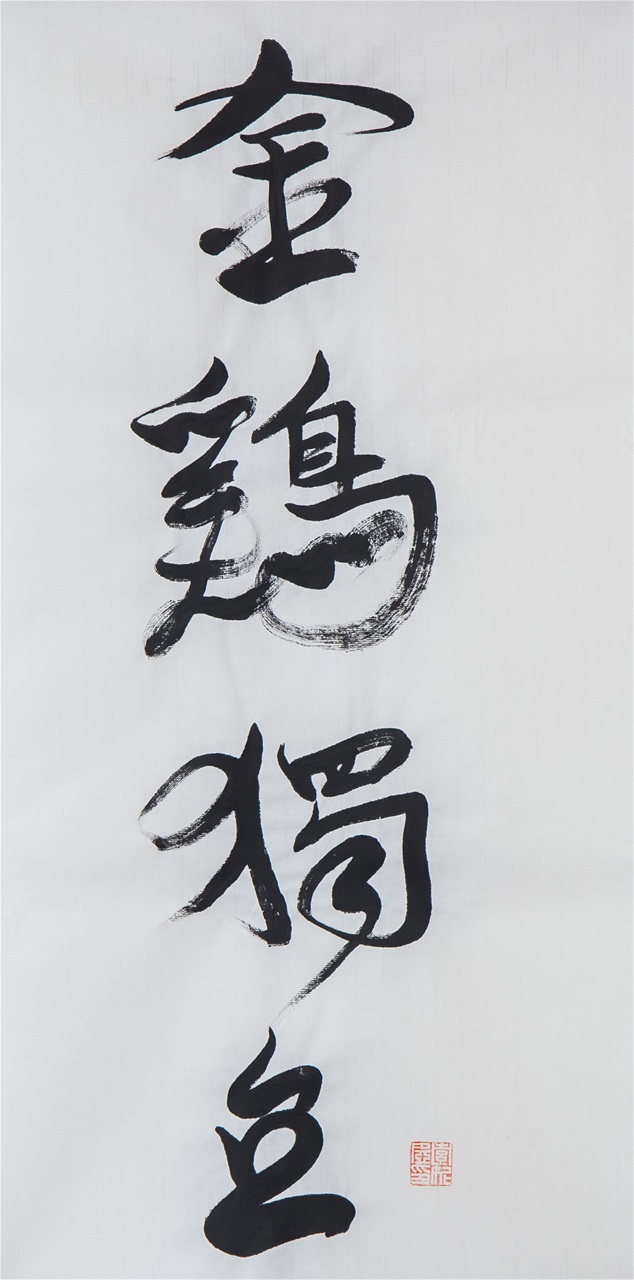 金鷄獨立